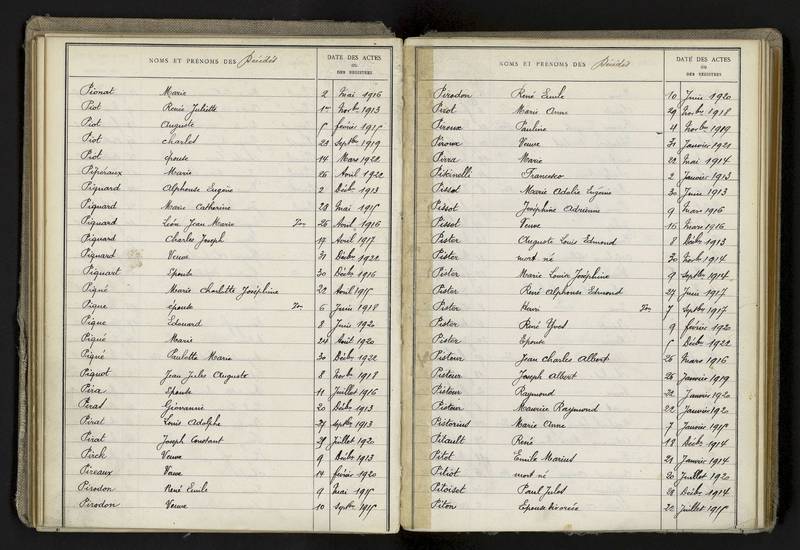 NOMS ET PRÉNOMS DES Décédés DATE DES ACTES OU DES REGISTRES
Piot Renée Juliette 1er Novbre 1913
Piot Auguste 5 février 1915
Piot Charles 23 Septbre 1919
Piot épouse 14 Mars 1922
Pipéraux Marie 26 Avril 1922
Piquard Alphonse Eugène 2 Décbre 1913
Piquard Marie Catherine 28 Mai 1915
Piquard Léon Jean Marie Ton 26 Avril 1916
Piquard Charles Joseph 17 Avril 1917
Piquard Veuve 31 Décbre 1922
Piquart Epouse 30 Décbre 1916
Piqué Marie Charlotte Joséphine 22 Avril 1915
Pique épouse Ton 6 Juin 1918
Pique Edouard 8 Juin 1920
Piqué Marie 24 Août 1920
Piqué Paulette Marie 30 Décbre 1922
Piquot Jean Jules Auguste 8 Novbre 1918
Pira Epouse 11 Juillet 1916
Pirat Giovanni 20 Décbre 1913
Pirat Louis Adolphe 27 Septbre 1913
Pirat Joseph Constant 29 Juillet 1920
Pirck Veuve 9 Décbre 1913
Pireaux Veuve 14 février 1920
Pirodon René Emile 9 Mai 1915
Pirodon Veuve 10 Septbre 1915
NOMS ET PRÉNOMS DES Décédés DATE DES ACTES OU DES REGISTRES
Pirodon René Emile 10 Juin 1920
Piriot Marie Anne 29 Novbre 1918
Piroux Pauline 4 Novbre 1919
Piroux Veuve 31 Janvier 1921
Pirra Marie 22 Mai 1914
Piscinelli Francesco 2 Janvier 1913
Pissot Marie Adélie Eugénie 30 Juin 1913
Pissot Joséphine Adrienne 9 Mars 1916
Pissot Veuve 16 Mars 1916
Pister Auguste Louis Edmond 8 Décbre 1913
Pister mort né 30 Novbre 1914
Pister Marie Louise Joséphine 9 Septbre 1914
Pister René Alphonse Edmond 27 Juin 1917
Pister Henri Ton 7 Septbre 1917
Pister René Yves 9 février 1920
Pister Epouse 5 Décbre 1922
Pisteur Jean Charles Albert 26 Mars 1916
Pisteur Joseph Albert 26 Janvier 1919
Pisteur Raymond 22 Janvier 1920
Pisteur Maurice Raymond 22 Janvier 1920
Pistorius Marie Anne 7 Janvier 1915
Pitault René 18 Décbre 1914
Pitot Emile Marius 21 Janvier 1914
Pitiot mort né 20 Juillet 1920
Pitoiset Paul Jules 28 Décbre 1914
Piton Epouse divorcée 22 Juillet 1915